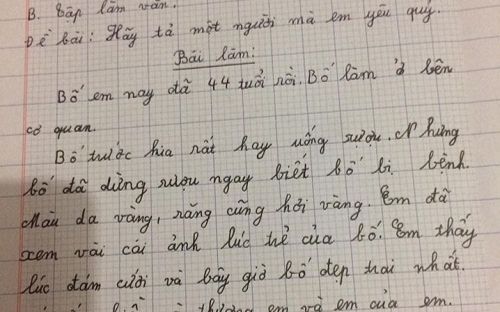 B. Tập làm văn.
Đề bài: Hãy tả một người mà em yêu quý.
Bài làm:
Bố em nay đã 44 tuổi rồi. Bố làm ở bên
cơ quan.
Bố trước kia rất hay uống rượu. Nhưng
bố đã dừng rượu ngay biết bố bị bệnh.
Màu da vàng, răng cũng hơi vàng. Em đã
xem vài cái ảnh lúc trẻ của bố. Em thấy
lúc đám cưới và bây giờ bố đẹp trai nhất.
thương em và em của em.